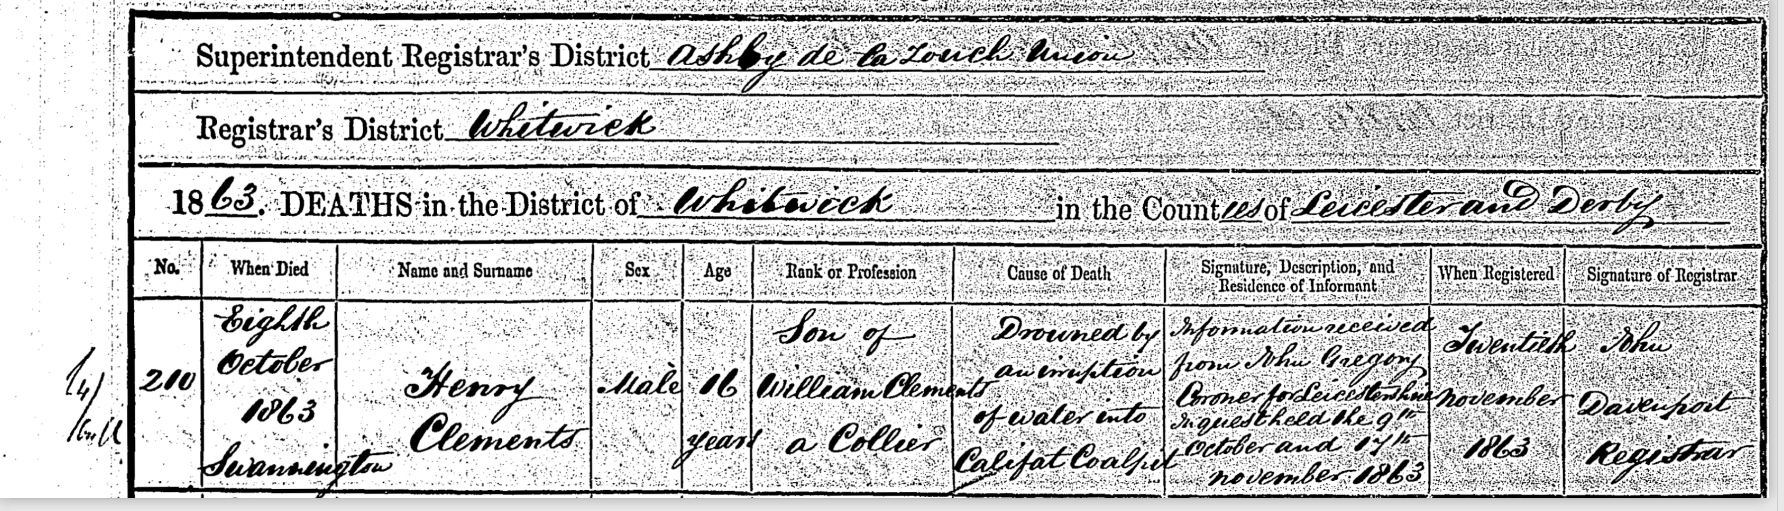 Superintendent Registrar's District Ashby de la Zouch Union
Registrar's District Whitwick
1863. DEATHS in the District of Whitwick in the Counties of Leicester and Derby
No. When Died Name and Surname Sex Age Rank or Profession Cause of Death Signature, Description, and Residence of Informant When Registered Signature of Registrar
210
Eighth
October
1863
Swannington
Henry
Clements
Male
16
years
Son of
William Clements
a Collier
Drowned by
an irruption
of water into
Califat Coalpit
Information received
from John Gregory
Coroner for Leicestershire
Inquest held the 9th
October and 17th
November 1863
Twentieth
November
1863
John
Davenport
Registrar